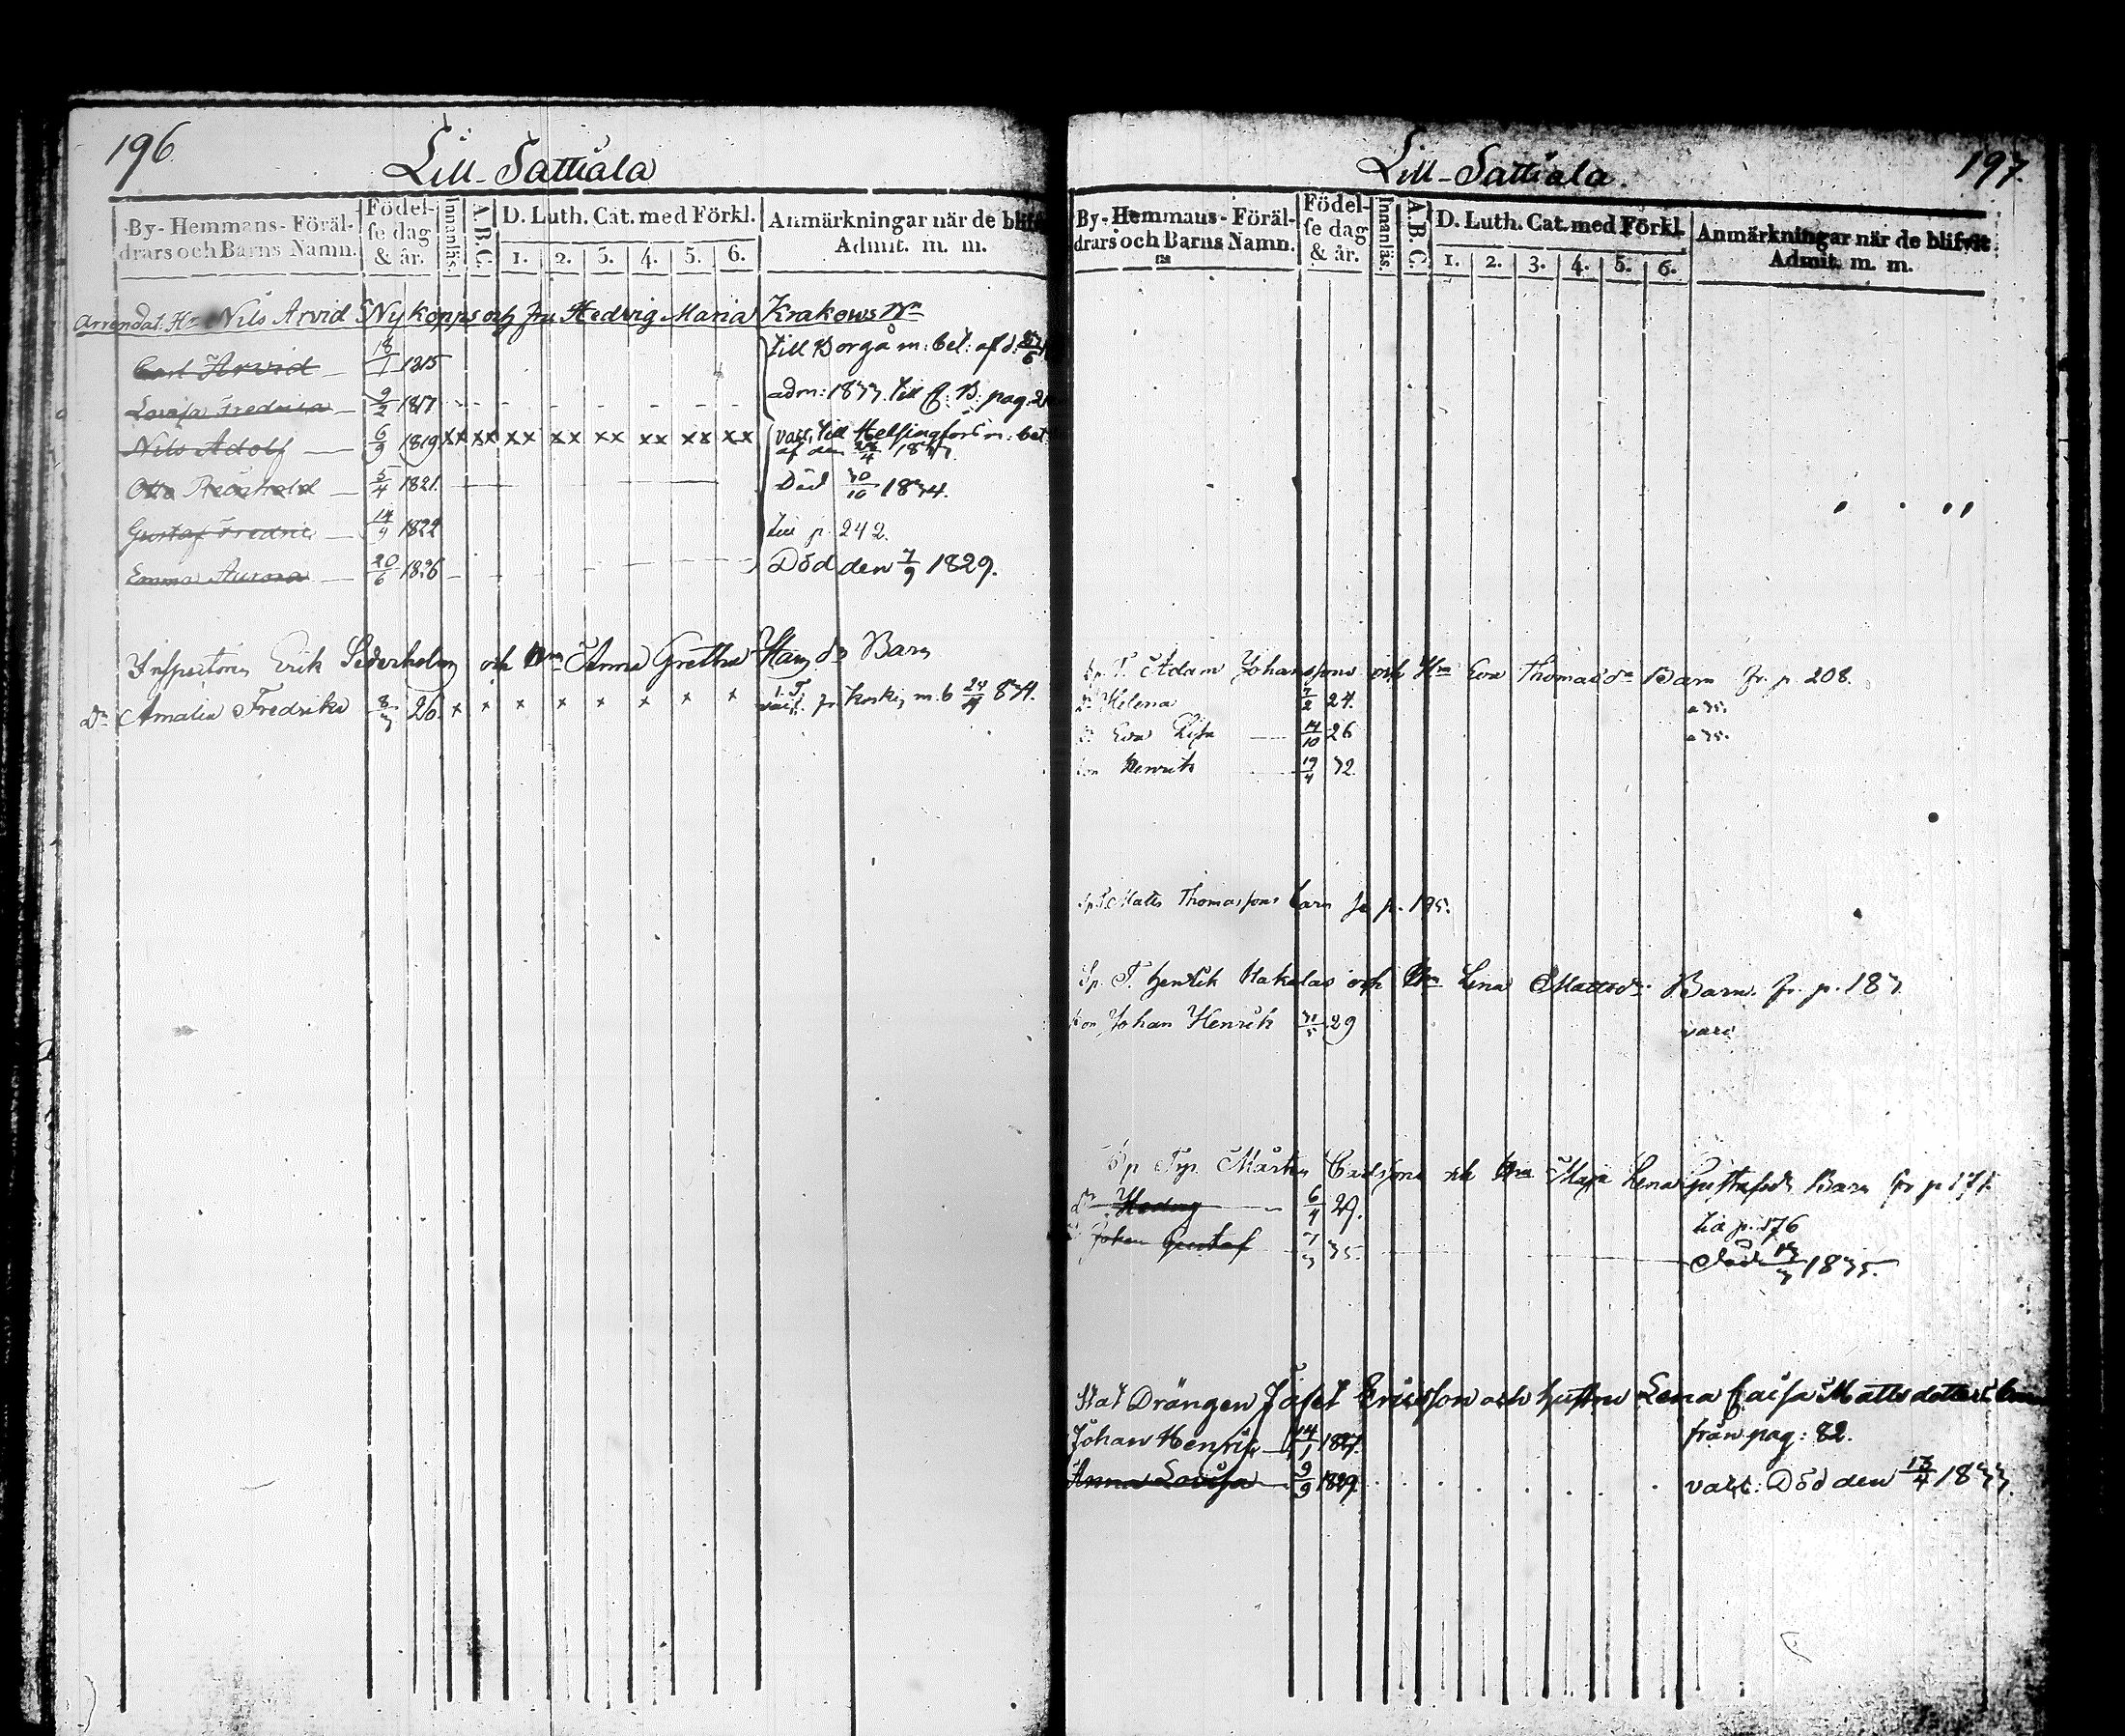 196.
Lill-Sattiala
By-Hemmans-Föräl-
drars och Barns Namn.
Födel-
se dag
& år.
Innanläs.
A.B.C.
D. Luth. Cat. med Förkl.
1. 2. 3. 4. 5. 6.
Anmärkningar när de
Admit. m. m.
Arrendat. Hr Nils Arvid Nykopps och fru Hedvig Maria Krakows Bn
Carl Arvid 18/1 1815 till Borgå m: bet: af d:
Lovisa Fredrica 9/2 1817 adm: 1833 till pag.
Nils Adolf 6/9 1819 xx xx xx xx xx xx xx xx vacc. till Helsingfors m: bet
af den 1833
Otto Reinhold 5/4 1821. Död 30/10 1834.
Gustaf Fredric 14/9 1822 p. 242.
Emma Aurora 20/6 1826 Död den 7/9 1829.
Inspectoren Erik Sederholm och Anna Gretha Barn
Dr Amalia Fredrika 8/3 26. x x x x x x x x vacc. fr. Koski m. b 834.
197.
Lill-Sattiala.
By-Hemmans-Föräl-
drars och Barns Namn.
Födel-
se dag
& år.
Innanläs.
A.B.C.
D. Luth. Cat. med Förkl.
1. 2. 3. 4. 5. 6.
Anmärkningar när de blifvit
Admit. m. m.
Sp. T. Adam Johanssons och Hu Eva Thomasdr Barn fr. p. 208.
Dr Helena 7/2 24. a 35.
Dr Eva Lisa 14/10 26 a 35.
Son Henrik 19/4 32.
Sp. T. Matts Thomassons barn se p. 195.
Sp. T. Henrik Makelas och Lena Mattsdr Barn. fr. p. 183
Son Johan Henrik 31/5 29 vacc.
Sp Tp. Mårten Carlssons och Maja Lena Gustafsdr Barn fr p 171.
dr Hedvig 6/4 29. till p. 176
Johan Gustaf 35. död 1835.
Stat Drängen Jafet Ericsson och hustru Lena Caisa Mattsdotters
Johan Henric 14/1 1827. från pag: 82.
Anna Lovisa 9/9 1829. vacc: Död den 13/4 1833.